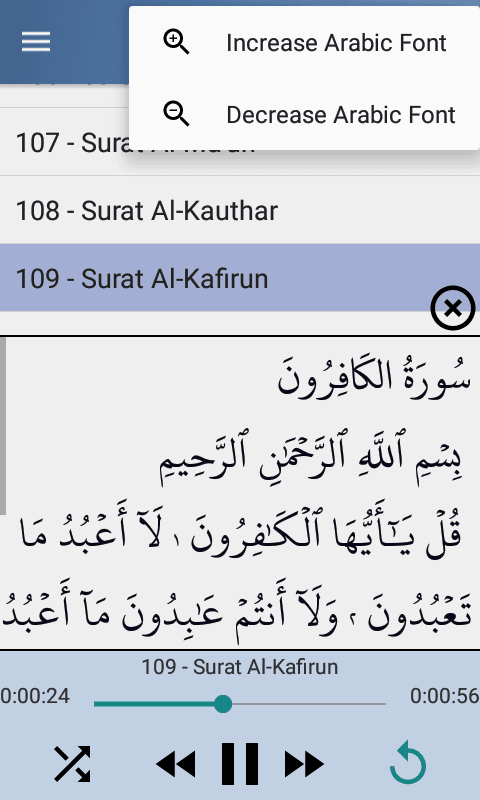 Increase Arabic Font
Decrease Arabic Font
107 - Surat
108 - Surat Al-Kauthar
109 - Surat Al-Kafirun
سُورَةُ الكَافِرُونَ
بِسۡمِ ٱللَّهِ ٱلرَّحۡمَٰنِ ٱلرَّحِيمِ
قُلۡ يَـٰٓأَيُّهَا ٱلۡكَـٰفِرُونَ ١ لَآ أَعۡبُدُ مَا
تَعۡبُدُونَ ٢ وَلَآ أَنتُمۡ عَـٰبِدُونَ مَآ أَعۡبُدُ
109 - Surat Al-Kafirun
0:00:24 0:00:56